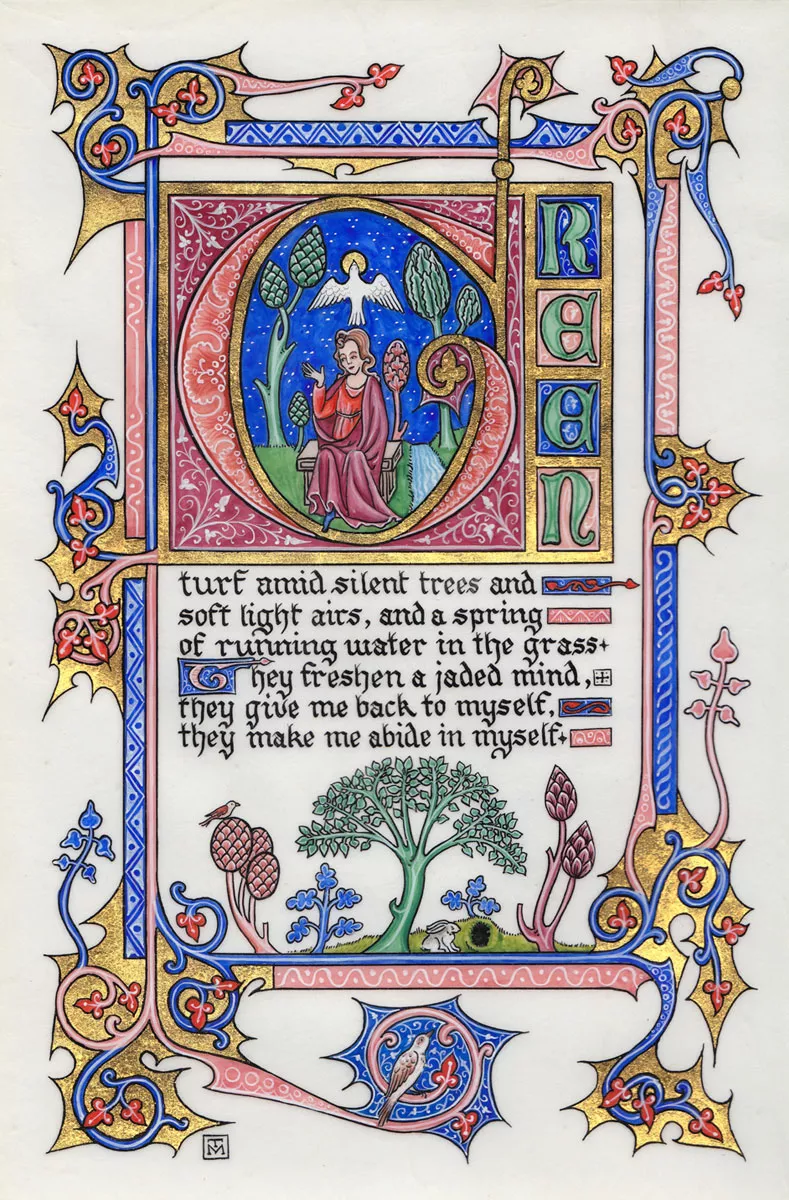 GREEN
turf amid silent trees and
soft light airs, and a spring
of running water in the grass
They freshen a jaded mind,
they give me back to myself,
they make me abide in myself
TM